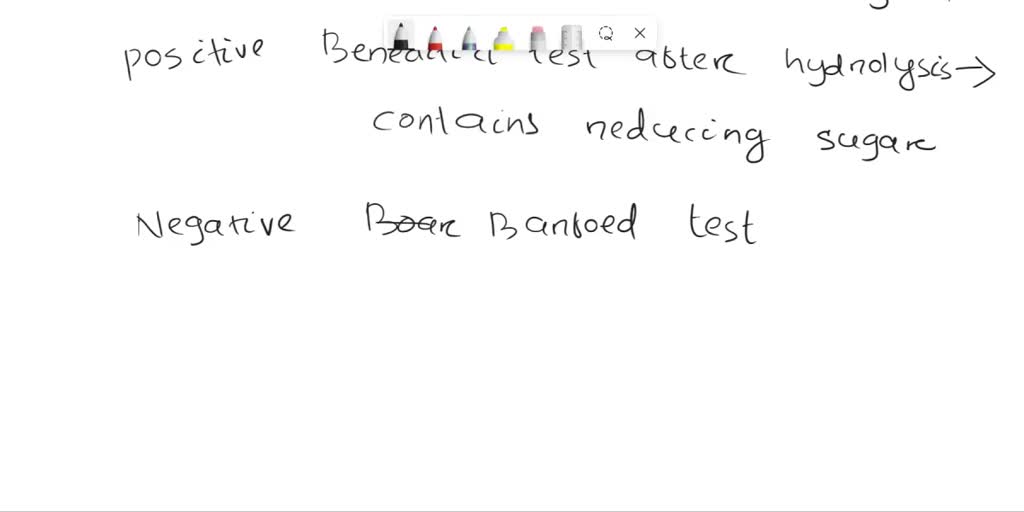 positive Benedict test after hydrolysis →
contains reducing sugar
Negative Barfoed test